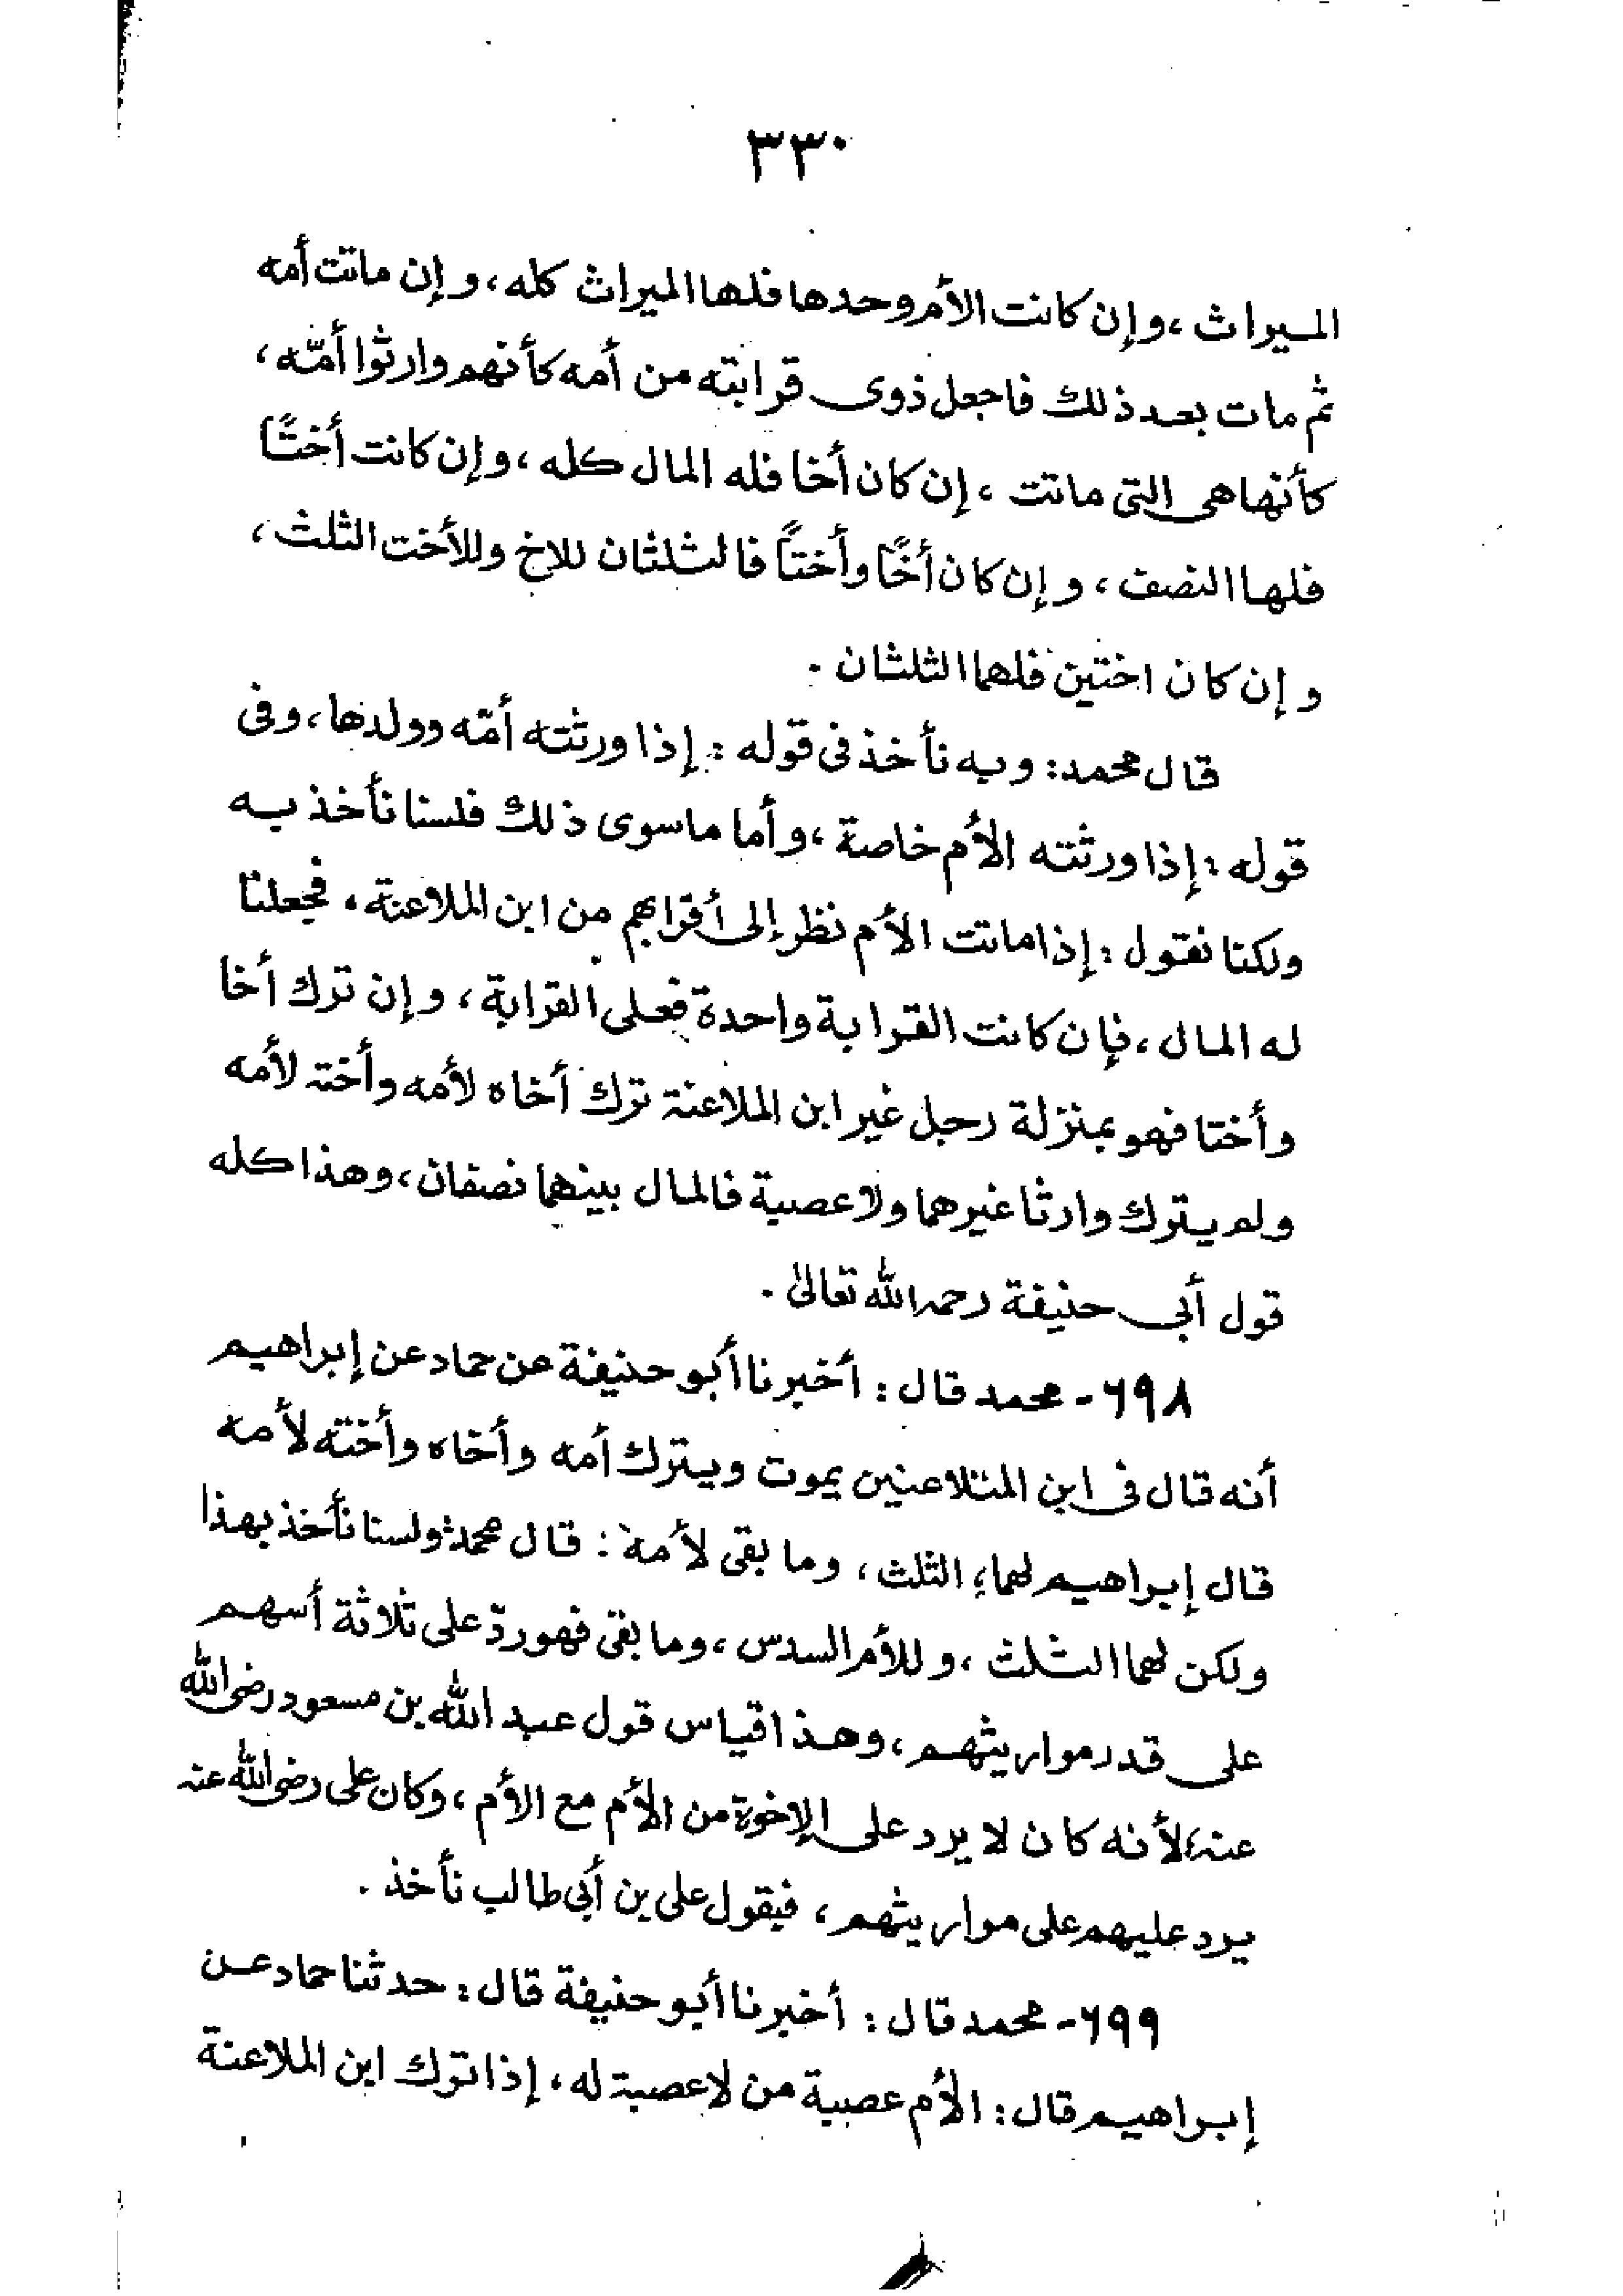 ٣٣٠
الميراث ، وإن كانت الأم وحدها فلها الميراث كله ، وإن ماتت أمه
ثم مات بعد ذلك فاجعل ذوى قرابته من أمه كأنهم وارثوا أمّه ،
كأنها هى التى ماتت ، إن كان أخا فله المال كله ، وإن كانت أختًا
فلها النصف ، وإن كان أخًا وأختًا فالثلثان للاخ وللأخت الثلث ،
وإن كان اختين فلهما الثلثان .
قال محمد: وبه نأخذ فى قوله : إذا ورثته أمّه وولدها ، وفى
قوله : إذا ورثته الأم خاصة ، وأما ماسوى ذلك فلسنا نأخذ به
ولكنا نقول : إذا ماتت الأم نظر إلى أقرابهم من ابن الملاعنة ، فجعلنا
له المال ، فإن كانت القرابة واحدة فعلى القرابة ، وإن ترك أخا
وأختا فهو بمنزلة رجل غير ابن الملاعنة ترك أخاه لأمه وأخته لأمه
ولم يترك وارثا غيرهما ولا عصبة فالمال بينهما نصفان ، وهذا كله
قول أبى حنيفة رحمه الله تعالى .
٦٩٨- محمد قال : أخبرنا أبو حنيفة عن حماد عن إبراهيم
أنه قال فى ابن المتلاعنين يموت ويترك أمه وأخاه وأخته لأمه
قال إبراهيم لهما الثلث ، وما بقى لأمه : قال محمد: ولسنا نأخذ بهذا
ولكن لهما الثلث ، وللأم السدس ، وما بقى فهو ردّ على ثلاثة أسهم
على قدر مواريثهم ، وهذا قياس قول عبد الله بن مسعود رضى الله
عنه، لأنه كان لا يرد على الإخوة من الأم مع الأم ، وكان على رضى الله عنه
يرد عليهم على مواريثهم ، فبقول على بن أبى طالب نأخذ .
٦٩٩- محمد قال : أخبرنا أبو حنيفة قال : حدثنا حماد عن
إبراهيم قال : الأم عصبة من لا عصبة له ، إذا ترك ابن الملاعنة